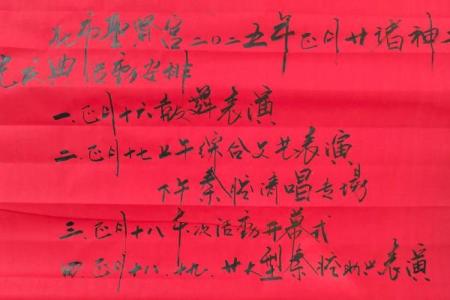 北帝聖賢宮二〇二五年正月廿诸神
庆典活動安排
一.正月十六散葬表演
二.正月十七上午综合文艺表演
下午秦腔清唱专場
三.正月十八午次活動开幕式
四.正月十八.十九.廿大型秦腔表演